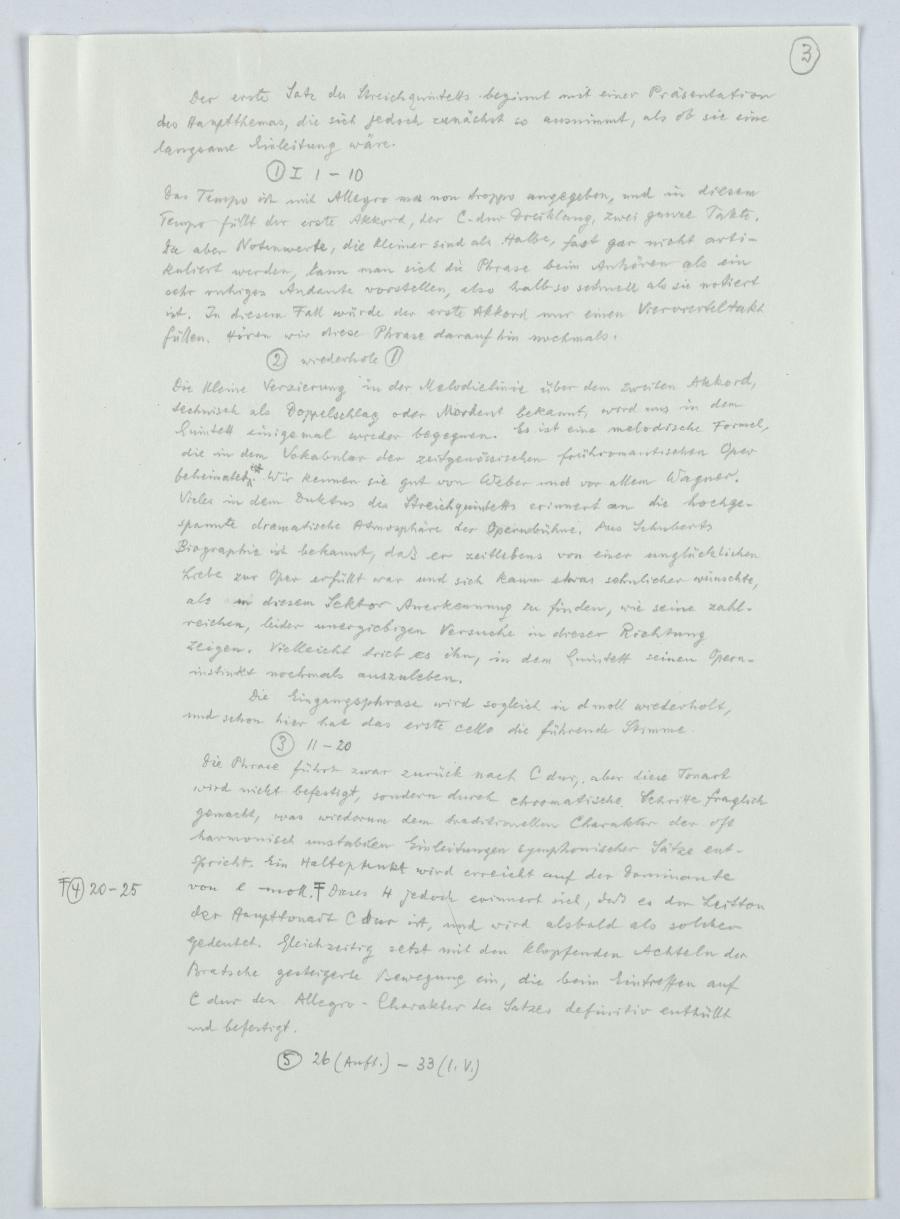 3
Der erste Satz des Streichquintetts beginnt mit einer Präsentation
des Hauptthemas, die sich jedoch zunächst so ausnimmt, als ob sie eine
langsame Einleitung wäre.
① I 1 – 10
Das Tempo ist mit Allegro ma non troppo angegeben, und in diesem
Tempo füllt der erste Akkord, der C-dur Dreiklang, zwei ganze Takte.
Da aber Notenwerte, die kleiner sind als Halbe, fast gar nicht arti-
kuliert werden, kann man sich die Phrase beim Anhören als ein
sehr ruhiges Andante vorstellen, also halb so schnell als sie notiert
ist. In diesem Fall würde der erste Akkord nur einen Viervierteltakt
füllen. Hören wir diese Phrase daraufhin nochmals.
② wiederhole ①
Die kleine Verzierung in der Melodielinie über dem zweiten Akkord,
technisch als Doppelschlag oder Mordent bekannt, wird uns in dem
Quintett einigemal wieder begegnen. Es ist eine melodische Formel,
die in dem Vokabular der zeitgenössischen frühromantischen Oper
beheimatet ist. Wir kennen sie gut von Weber und vor allem Wagner.
Vieles in dem Duktus des Streichquintetts erinnert an die hochge-
spannte dramatische Atmosphäre der Opernbühne. Aus Schuberts
Biographie ist bekannt, daß er zeitlebens von einer unglücklichen
Liebe zur Oper erfüllt war und sich kaum etwas sehnlicher wünschte,
als in diesem Sektor Anerkennung zu finden, wie seine zahl-
reichen, leider unergiebigen Versuche in dieser Richtung
zeigen. Vielleicht trieb es ihn, in dem Quintett seinen Opern-
instinkt nochmals auszuleben.
Die Eingangsphrase wird sogleich in d moll wiederholt,
und schon hier hat das erste Cello die führende Stimme.
③ 11 – 20
Die Phrase führt zwar zurück nach C dur, aber diese Tonart
wird nicht befestigt, sondern durch chromatische Schritte fraglich
gemacht, was wiederum dem traditionellen Charakter der oft
harmonisch unstabilen Einleitungen symphonischer Sätze ent-
spricht. Ein Haltepunkt wird erreicht auf der Dominante
von e moll. Dieses H jedoch erinnert sich, daß es der Leitton
der Haupttonart C dur ist, und wird alsbald als solcher
gedeutet. Gleichzeitig setzt mit den klopfenden Achteln der
Bratsche gesteigerte Bewegung ein, die beim Eintreffen auf
C dur den Allegro-Charakter des Satzes definitiv enthüllt
und befestigt.
④ 20–25
⑤ 26 (Auft.) – 33 (1. V.)